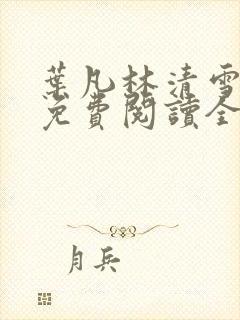 葉凡林清雪
免費閱讀全
月兵